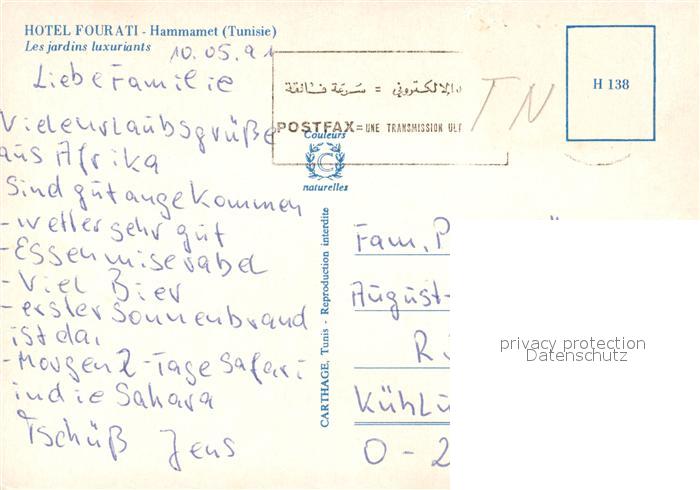 HOTEL FOURATI - Hammamet (Tunisie)
Les jardins luxuriants
10.05.91
Liebe Familie
Viele Urlaubsgrüße
aus Afrika
Sind gut angekommen
- wetter sehr gut
- Essen miserabel
- Viel Bier
- erster Sonnenbrand
ist da.
- Morgen 2-Tage Safari
in die Sahara
Tschüß Jens
سرعة فائقة = الالكتروني
POSTFAX = UNE TRANSMISSION
TN
H 138
Couleurs
C
naturelles
CARTHAGE, Tunis - Reproduction interdite
Fam. P
August-
R
Kühlu
O-2
privacy protection
Datenschutz